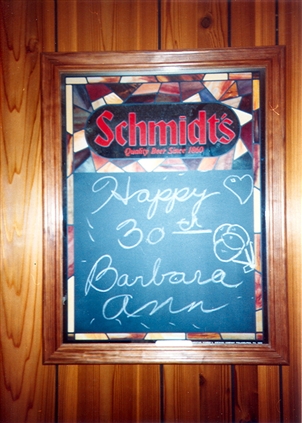 Schmidt's
Quality Beer Since 1860
Happy
30th
Barbara
Ann